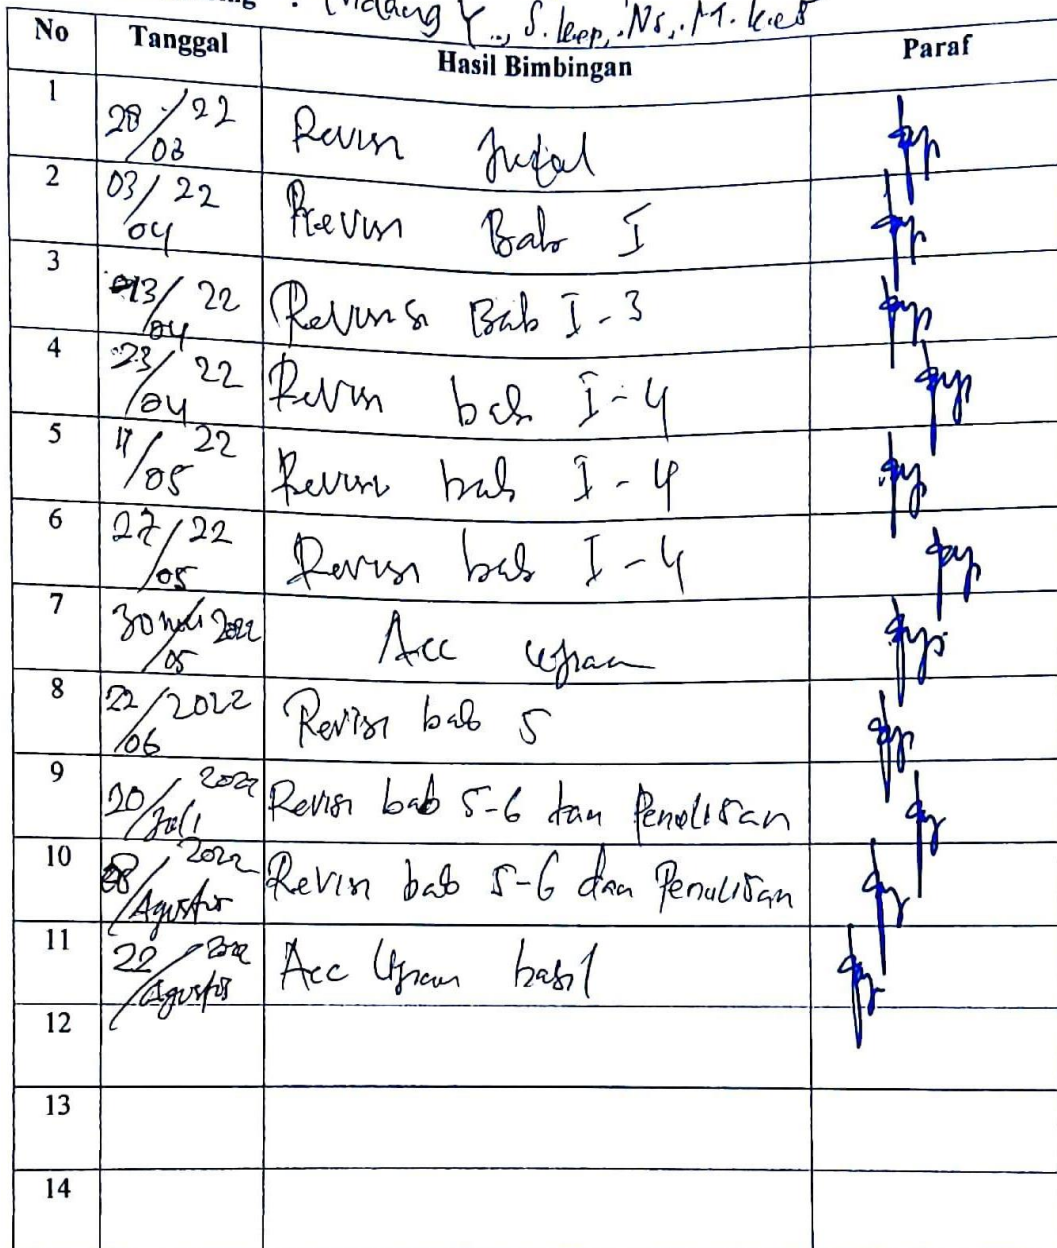 Y., S.Kep,.Ns,.M.Kes
No Tanggal Hasil Bimbingan Paraf
1 28/03 22 Revisi Judul
2 03/04 22 Revisi Bab I
3 13/04 22 Revisi Bab I - 3
4 23/04 22 Revisi bab I - 4
5 17/05 22 Revisi bab I - 4
6 27/05 22 Revisi bab I - 4
7 30 Mei 2022 /05 Acc Ujian
8 22/06 2022 Revisi bab 5
9 20/Juli 2022 Revisi bab 5-6 dan Penulisan
10 08/Agustus 2022 Revisi bab 5-6 dan Penulisan
11 22/Agustus 2022 Acc Ujian hasil
12
13
14